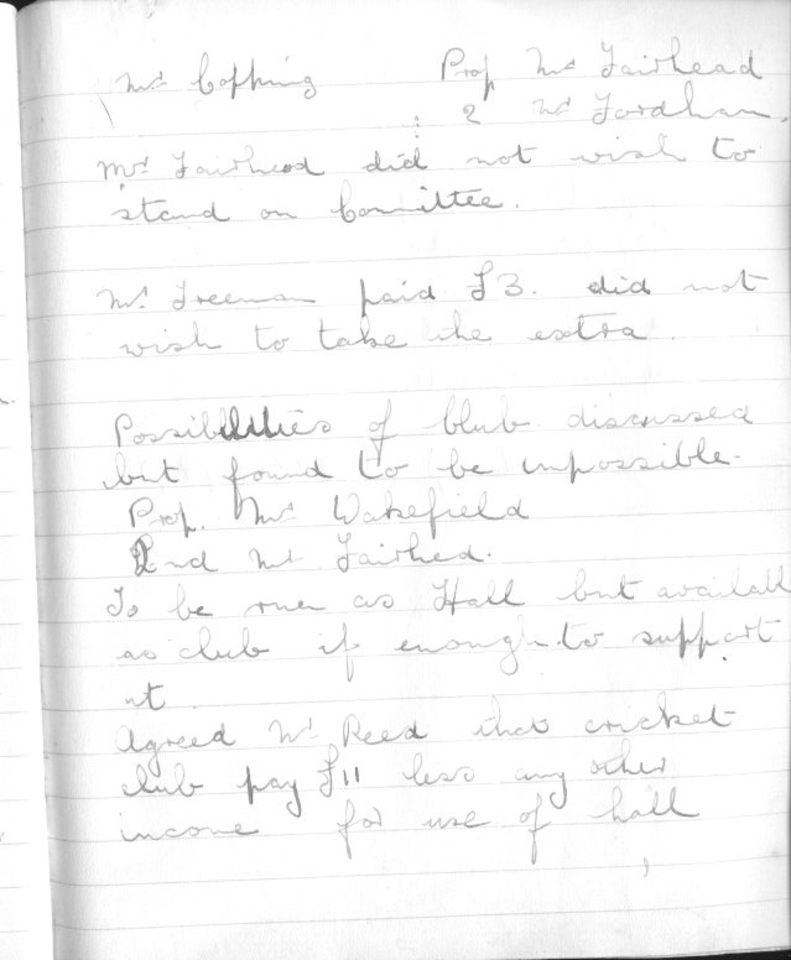 Mr Copping Prop Mr Fairhead
2 Mr Fordham.
Mr Fairhead did not wish to
stand on Committee.
Mr Freeman paid £3. did not
wish to take the extra.
Possibilities of Club discussed
but found to be impossible.
Prop. Mr Wakefield
2nd Mr Fairhed.
To be run as Hall but availabl
as club if enough to support
it.
Agreed Mr Reed that cricket
club pay £11 less any other
income for use of hall